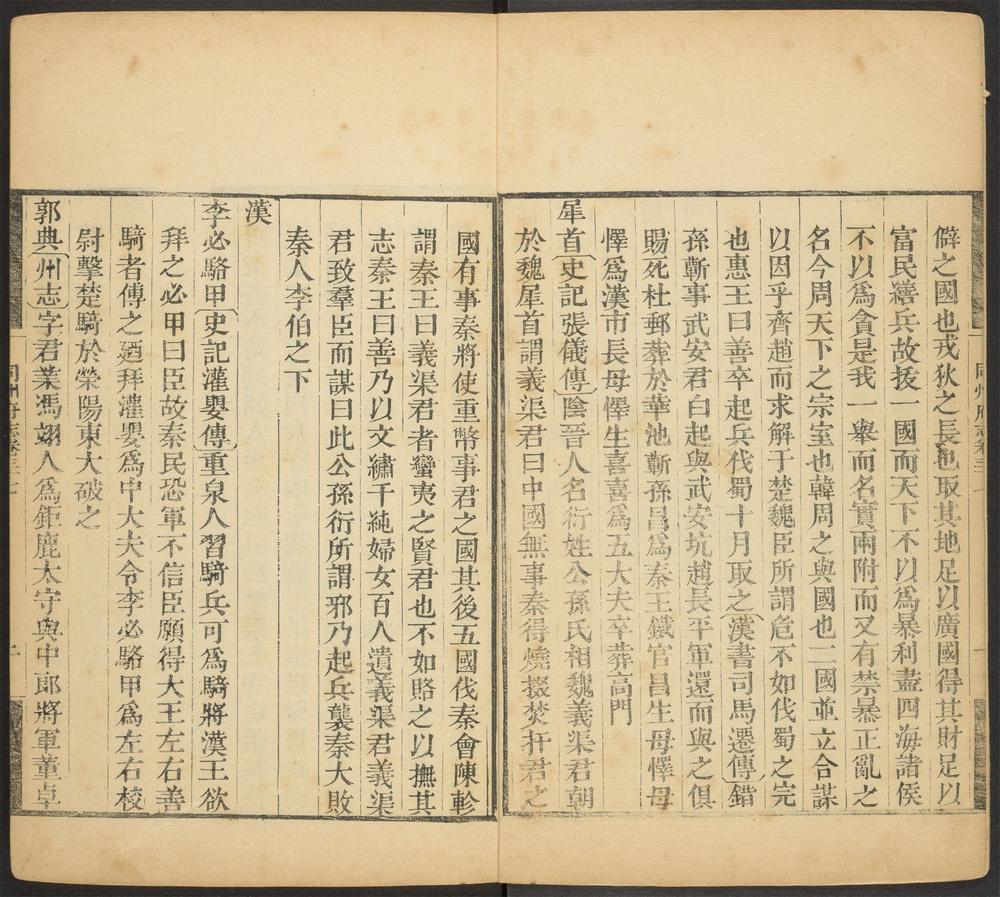 僻之國也戎狄之長也取其地足以廣國得其財足以
富民繕兵故拔一國而天下不以爲暴利盡四海諸侯
不以爲貪是我一舉而名實兩附而又有禁暴正亂之
名今周天下之宗室也韓周之與國也二國並立合謀
以因乎齊趙而求解于楚魏臣所謂危不如伐蜀之完
也惠王曰善卒起兵伐蜀十月取之漢書司馬遷傳錯
孫蘄事武安君白起與武安坑趙長平軍還而與之俱
賜死杜郵葬於華池蘄孫昌爲秦王鐵官昌生毋懌毋
懌爲漢市長毋懌生喜喜爲五大夫卒葬高門
犀首史記張儀傳陰晉人名衍姓公孫氏相魏義渠君朝
於魏犀首謂義渠君曰中國無事秦得燒掇焚扞君之
國有事秦將使重幣事君之國其後五國伐秦會陳軫
謂秦王曰義渠君者蠻夷之賢君也不如賂之以撫其
志秦王曰善乃以文繡千純婦女百人遺義渠君義渠
君致羣臣而謀曰此公孫衍所謂邪乃起兵襲秦大敗
秦人李伯之下
漢
李必駱甲史記灌嬰傳重泉人習騎兵可爲騎將漢王欲
拜之必甲曰臣故秦民恐軍不信臣願得大王左右善
騎者傅之廼拜灌嬰爲中大夫令李必駱甲爲左右校
尉擊楚騎於滎陽東大破之
郭典州志字君業馮翊人爲鉅鹿太守與中郎將軍董卓
同州府志卷三十